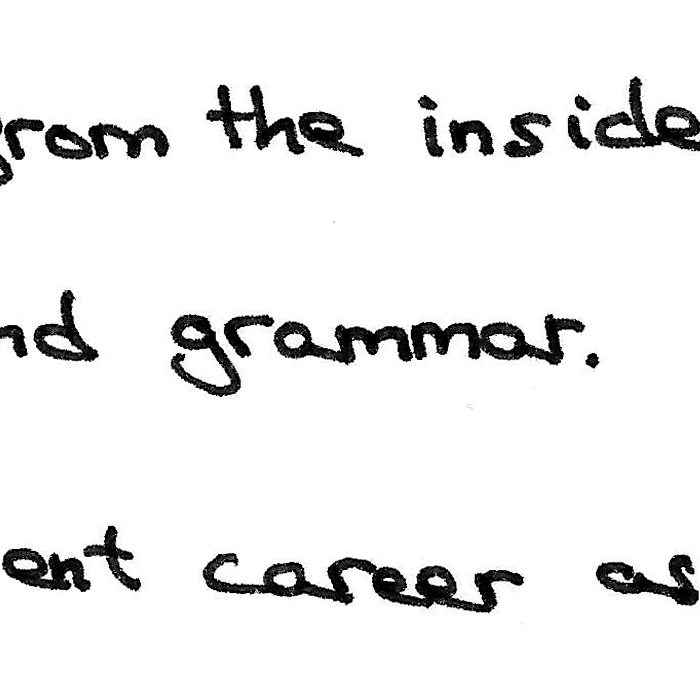 from the inside
nd grammar.
ent career as